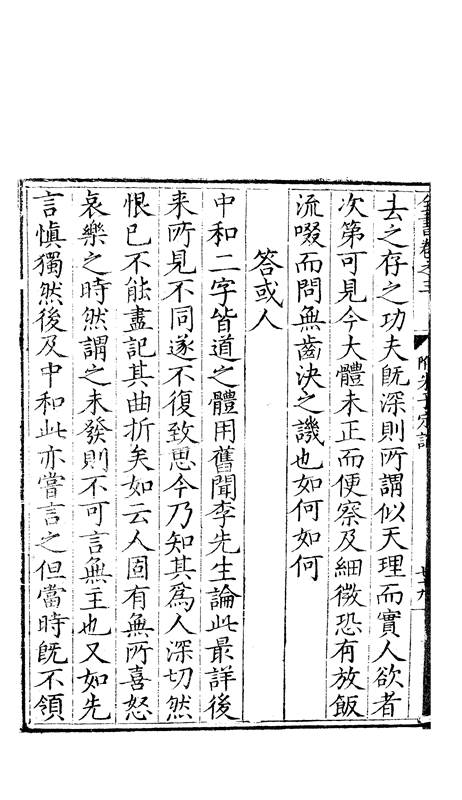 去之存之功夫既深則所謂似天理而實人欲者
次第可見今大體未正而便察及細微恐有放飯
流啜而問無齒決之譏也如何如何
答或人
中和二字皆道之體用舊聞李先生論此最詳後
来所見不同遂不復致思今乃知其為人深切然
恨已不能盡記其曲折矣如云人固有無所喜怒
哀樂之時然謂之未發則不可言無主也又如先
言慎獨然後及中和此亦嘗言之但當時既不領